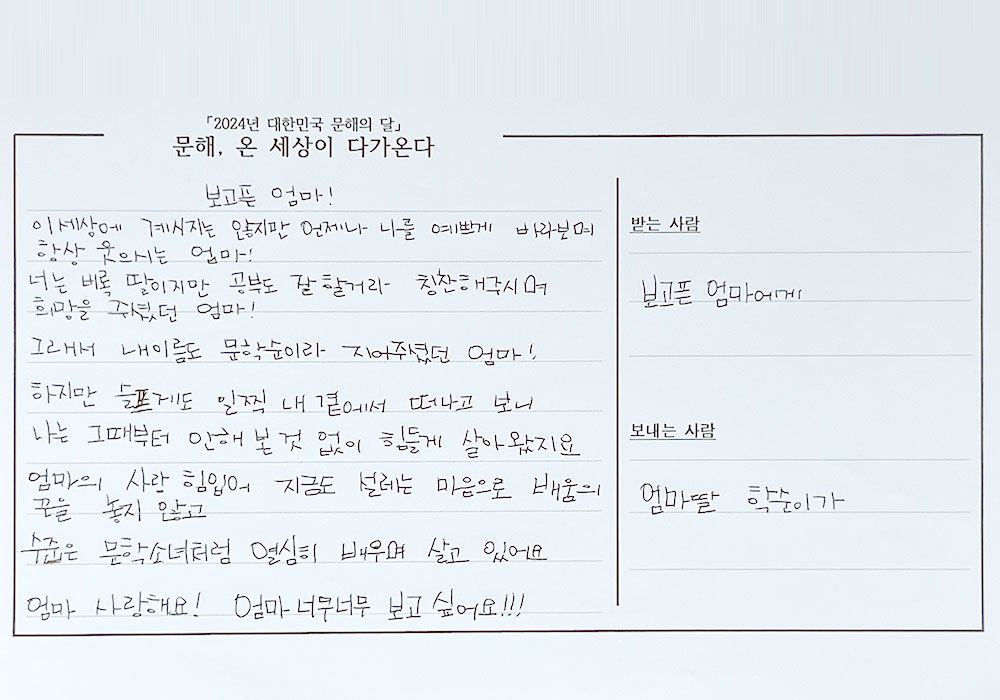 「2024년 대한민국 문해의 달」
문해, 온 세상이 다가온다
보고픈 엄마!
이세상에 계시지는 않지만 언제나 나를 예쁘게 바라보며
항상 웃으시는 엄마!
너는 비록 딸이지만 공부도 잘 할거라 칭찬해주시며
희망을 주셨던 엄마!
그래서 내이름도 문학순이라 지어주셨던 엄마!
하지만 슬프게도 일찍 내 곁에서 떠나고 보니
나는 그때부터 안해 본 것 없이 힘들게 살아왔지요
엄마의 사랑 힘입어 지금도 설레는 마음으로 배움의
꾼을 놓지 않고
수준은 문학소녀처럼 열심히 배우며 살고 있어요
엄마 사랑해요! 엄마 너무너무 보고 싶어요!!!
받는 사람
보고픈 엄마에게
보내는 사람
엄마딸 학순이가